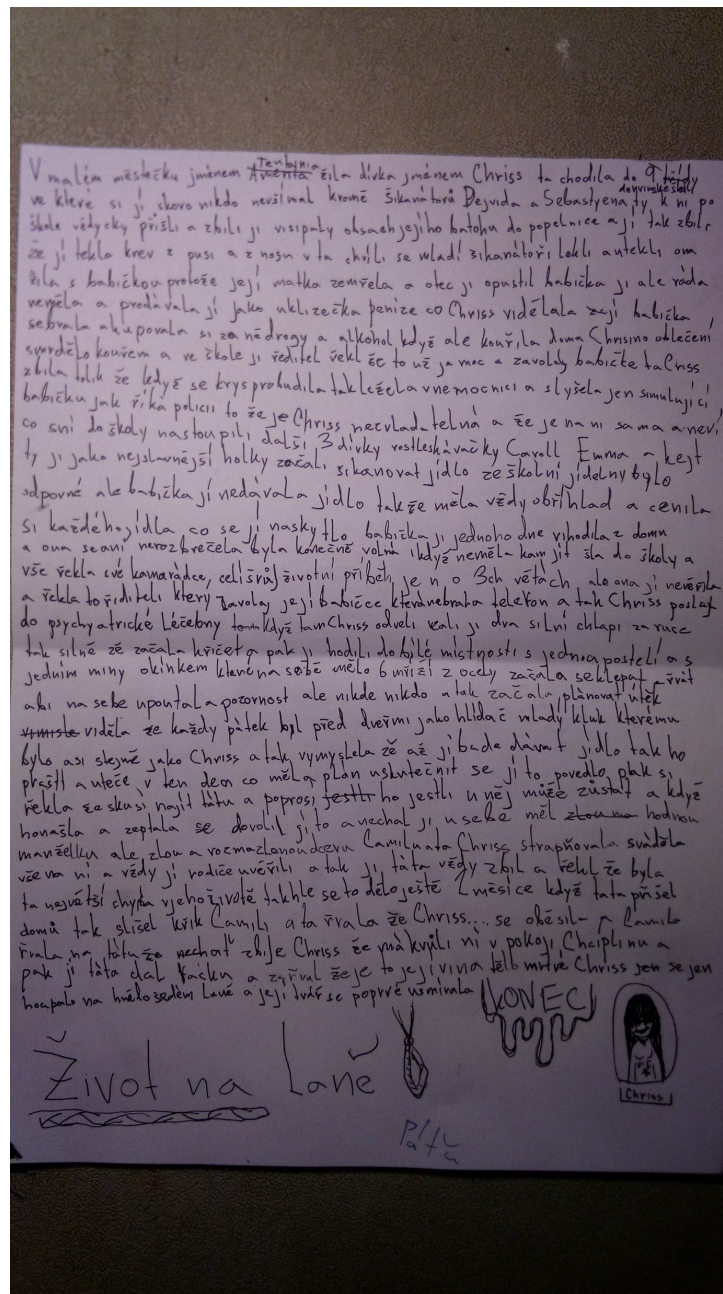 V malém městečku jménem Tenbynia Amenta žila dívka jménem Chriss ta chodila do 9 třídy
ve které si jí skoro nikdo nevšímal kromě šikanátorů Dejvida a Sebastyena, ty k ní po
škole vždycky přišli a zbili ji visipaly obsach jejího batohu do popelnice a jí tak zbili
že jí tekla krev z pusi a z nosu v ta chvíli se mladí šikanátoři lekli a utekli ona
žila s babičkou protože její matka zemřela a otec jí opustil babička jí ale ráda
neměla a prodávala jí jako uklizečka peníze co Chriss vidělala její babička
sebrala a kupovala si za ně drogy a alkohol když ale kouřila doma Chrisino oblečení
smrdělo kouřem a ve škole jí ředitel řekl že to už je moc a zavolal babičte ta Criss
zbila tolik že když se krys probudila tak ležela v nemocnici a slyšela jen simulující
babičku jak říká policii to že je Chriss nezvladatelná a že je na ni sama a neví
co sní do školy nastoupili další 3 dívky rostleskávačky Caroll Emma a kejt
ty jí jako nejslavnější holky začali šikanovat jídlo ze školní jídelny bylo
odporné ale babička jí nedávala jídlo takže měla vždy obří hlad a cenila
si každého jídla co se jí naskytlo babička jí jednoho dne vihodila z domu
a ona se ani nerozbrečela byla konečně volná i když neměla kam jít šla do školy a
vše řekla své kamarádce, celí svůj životní příběh, je n o 3ch větách ale ona jí nevěřila
a řekla to řiditeli který zavolal její babičce která nebrala telefon a tak Chriss poslal
do psychyatrické Léčebny když tam Chriss odveli vzali jí dva silní chlapi za ruce
tak silně že začala křičet a pak jí hodili do bílé místnosti s jednou postelí a s
jedním miny okínkem které na sobě mělo 6 mříží z ocely začala se klepat a řvát
abi na sebe upoutala pozornost ale nikde nikdo a tak začala plánovat útěk
viděla že každy pátek byl před dveřmi jako hlídač mladý kluk kterému
bylo asi stejně jako Chriss a tak vymyslela že až jí bude dávat jídlo tak ho
praští a uteče v ten den co měla plán uskutečnit se jí to povedlo pak si
řekla že skusí najít tátu a poprosí jestli ho jestli u něj může zůstat a když
ho našla a zeptala se dovolil jí to a nechal jí u sebe měl hodnou
manželku ale zlou a rozmazlenou dceru Camilu a ta Chriss strapňovala sváděla
vše na ni a vždy jí rodiče uvěřili a tak jí táta vždy zbil a řekl že byla
ta největší chyba v jeho životě takhle se to dělo ještě 2 měsíce když tata přišel
domů tak slišel křik Camili a ta řvala že Chriss... se oběsila Camila
řvala na tátu že nechať zbije Chriss že má kvůli ní v pokoji Chciplinu a
pak jí táta dal facku a zařval že je to její vina tělo mrtvé Chriss jen se jen
houpalo na hnědo šedém laně a její tvář se poprvé usmívala KONEC
Život na Laně
Chriss